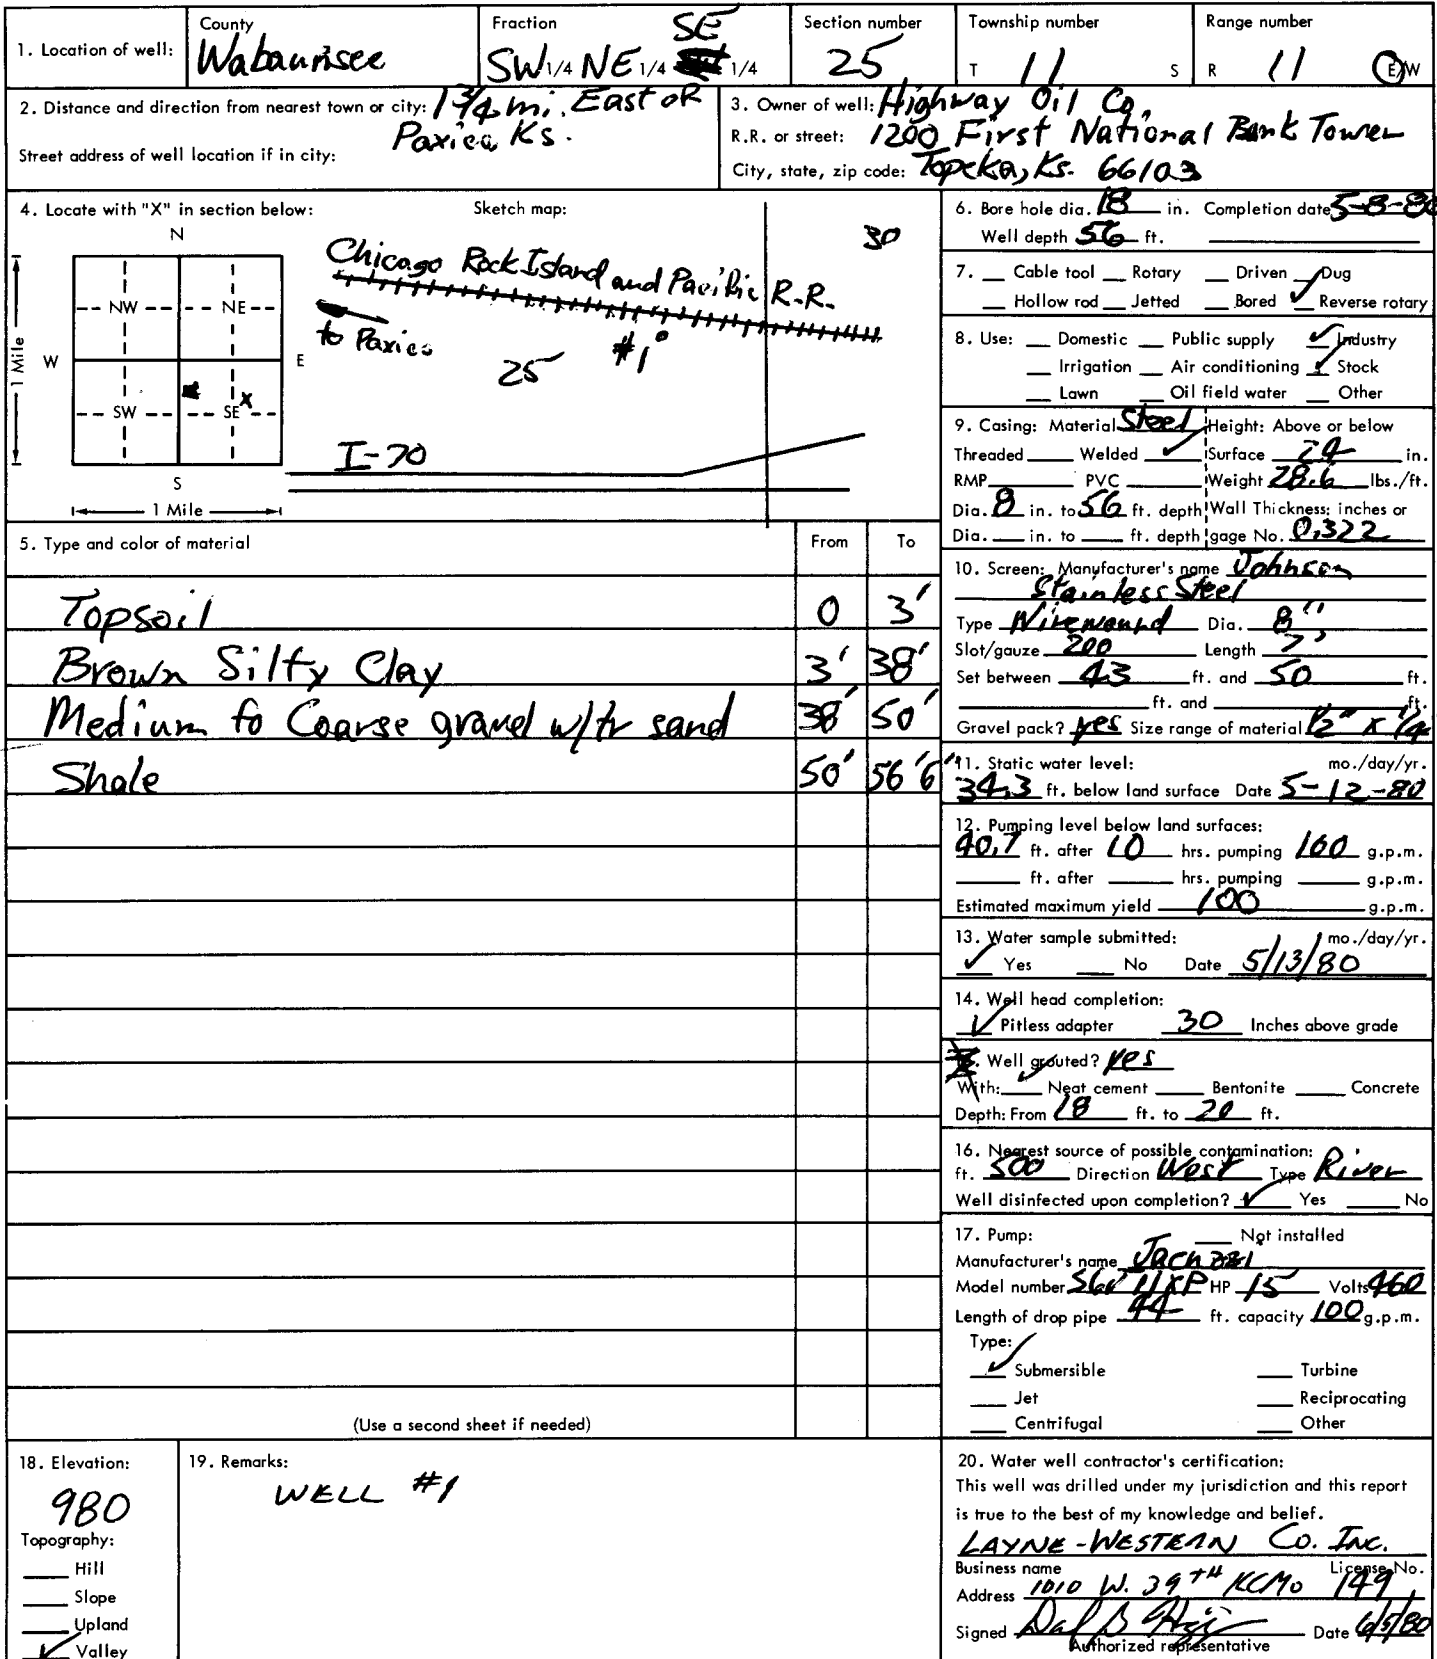 1. Location of well: County Wabaunsee Fraction SW 1/4 NE 1/4 SE 1/4 Section number 25 Township number T 11 S Range number R 11 E/W
2. Distance and direction from nearest town or city: 1 3/4 mi. East of
Paxico Ks.
Street address of well location if in city:
3. Owner of well: Highway Oil Co,
R.R. or street: 1200 First National Bank Tower
City, state, zip code: Topeka, Ks. 66103
4. Locate with "X" in section below: Sketch map:
N
NW NE
W E
SW SE X
S
1 Mile
1 Mile
30
Chicago Rock Island and Pacific R.R.
to Paxico
25 #1
I-70
5. Type and color of material From To
Topsoil 0 3'
Brown Silty Clay 3' 38'
Medium to Coarse gravel w/tr sand 38' 50'
Shale 50' 56'6"
(Use a second sheet if needed)
6. Bore hole dia. 18 in. Completion date 5-8-80
Well depth 56 ft.
7. Cable tool Rotary Driven Dug
Hollow rod Jetted Bored ✓ Reverse rotary
8. Use: Domestic Public supply ✓ Industry
Irrigation Air conditioning ✓ Stock
Lawn Oil field water Other
9. Casing: Material Steel Height: Above or below
Threaded Welded ✓ Surface 24 in.
RMP PVC Weight 28.6 lbs./ft.
Dia. 8 in. to 56 ft. depth Wall Thickness: inches or
Dia. in. to ft. depth gage No. 0.322
10. Screen: Manufacturer's name Johnson
Stainless Steel
Type Wirewound Dia. 8"
Slot/gauze 200 Length 7'
Set between 43 ft. and 50 ft.
ft. and ft.
Gravel pack? yes Size range of material 1/2" x 1/4
11. Static water level: mo./day/yr.
34.3 ft. below land surface Date 5-12-80
12. Pumping level below land surfaces:
40.7 ft. after 10 hrs. pumping 100 g.p.m.
ft. after hrs. pumping g.p.m.
Estimated maximum yield 100 g.p.m.
13. Water sample submitted: mo./day/yr.
✓ Yes No Date 5/13/80
14. Well head completion:
✓ Pitless adapter 30 Inches above grade
Well grouted? yes
With: ✓ Neat cement Bentonite Concrete
Depth: From 18 ft. to 20 ft.
16. Nearest source of possible contamination:
ft. 500 Direction West Type River
Well disinfected upon completion? ✓ Yes No
17. Pump: Not installed
Manufacturer's name
Model number HP 15 Volts 460
Length of drop pipe 44 ft. capacity 100 g.p.m.
Type:
✓ Submersible Turbine
Jet Reciprocating
Centrifugal Other
18. Elevation:
980
Topography:
Hill
Slope
Upland
✓ Valley
19. Remarks:
WELL #1
20. Water well contractor's certification:
This well was drilled under my jurisdiction and this report
is true to the best of my knowledge and belief.
LAYNE-WESTERN Co. INC.
Business name License No.
Address 1010 W. 39TH KCMO 149
Signed Date 6/5/80
Authorized representative